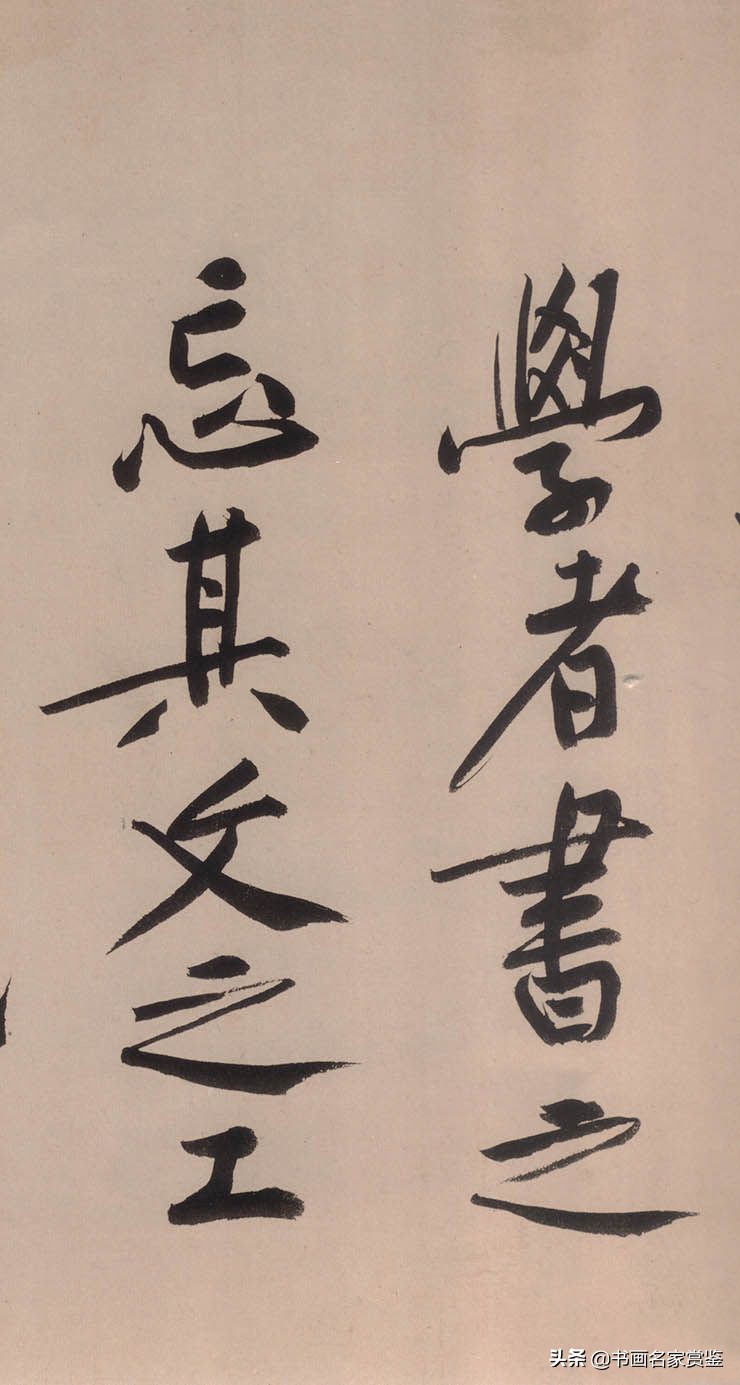 學者書之
忘其文之工
头条 @书画名家赏鉴